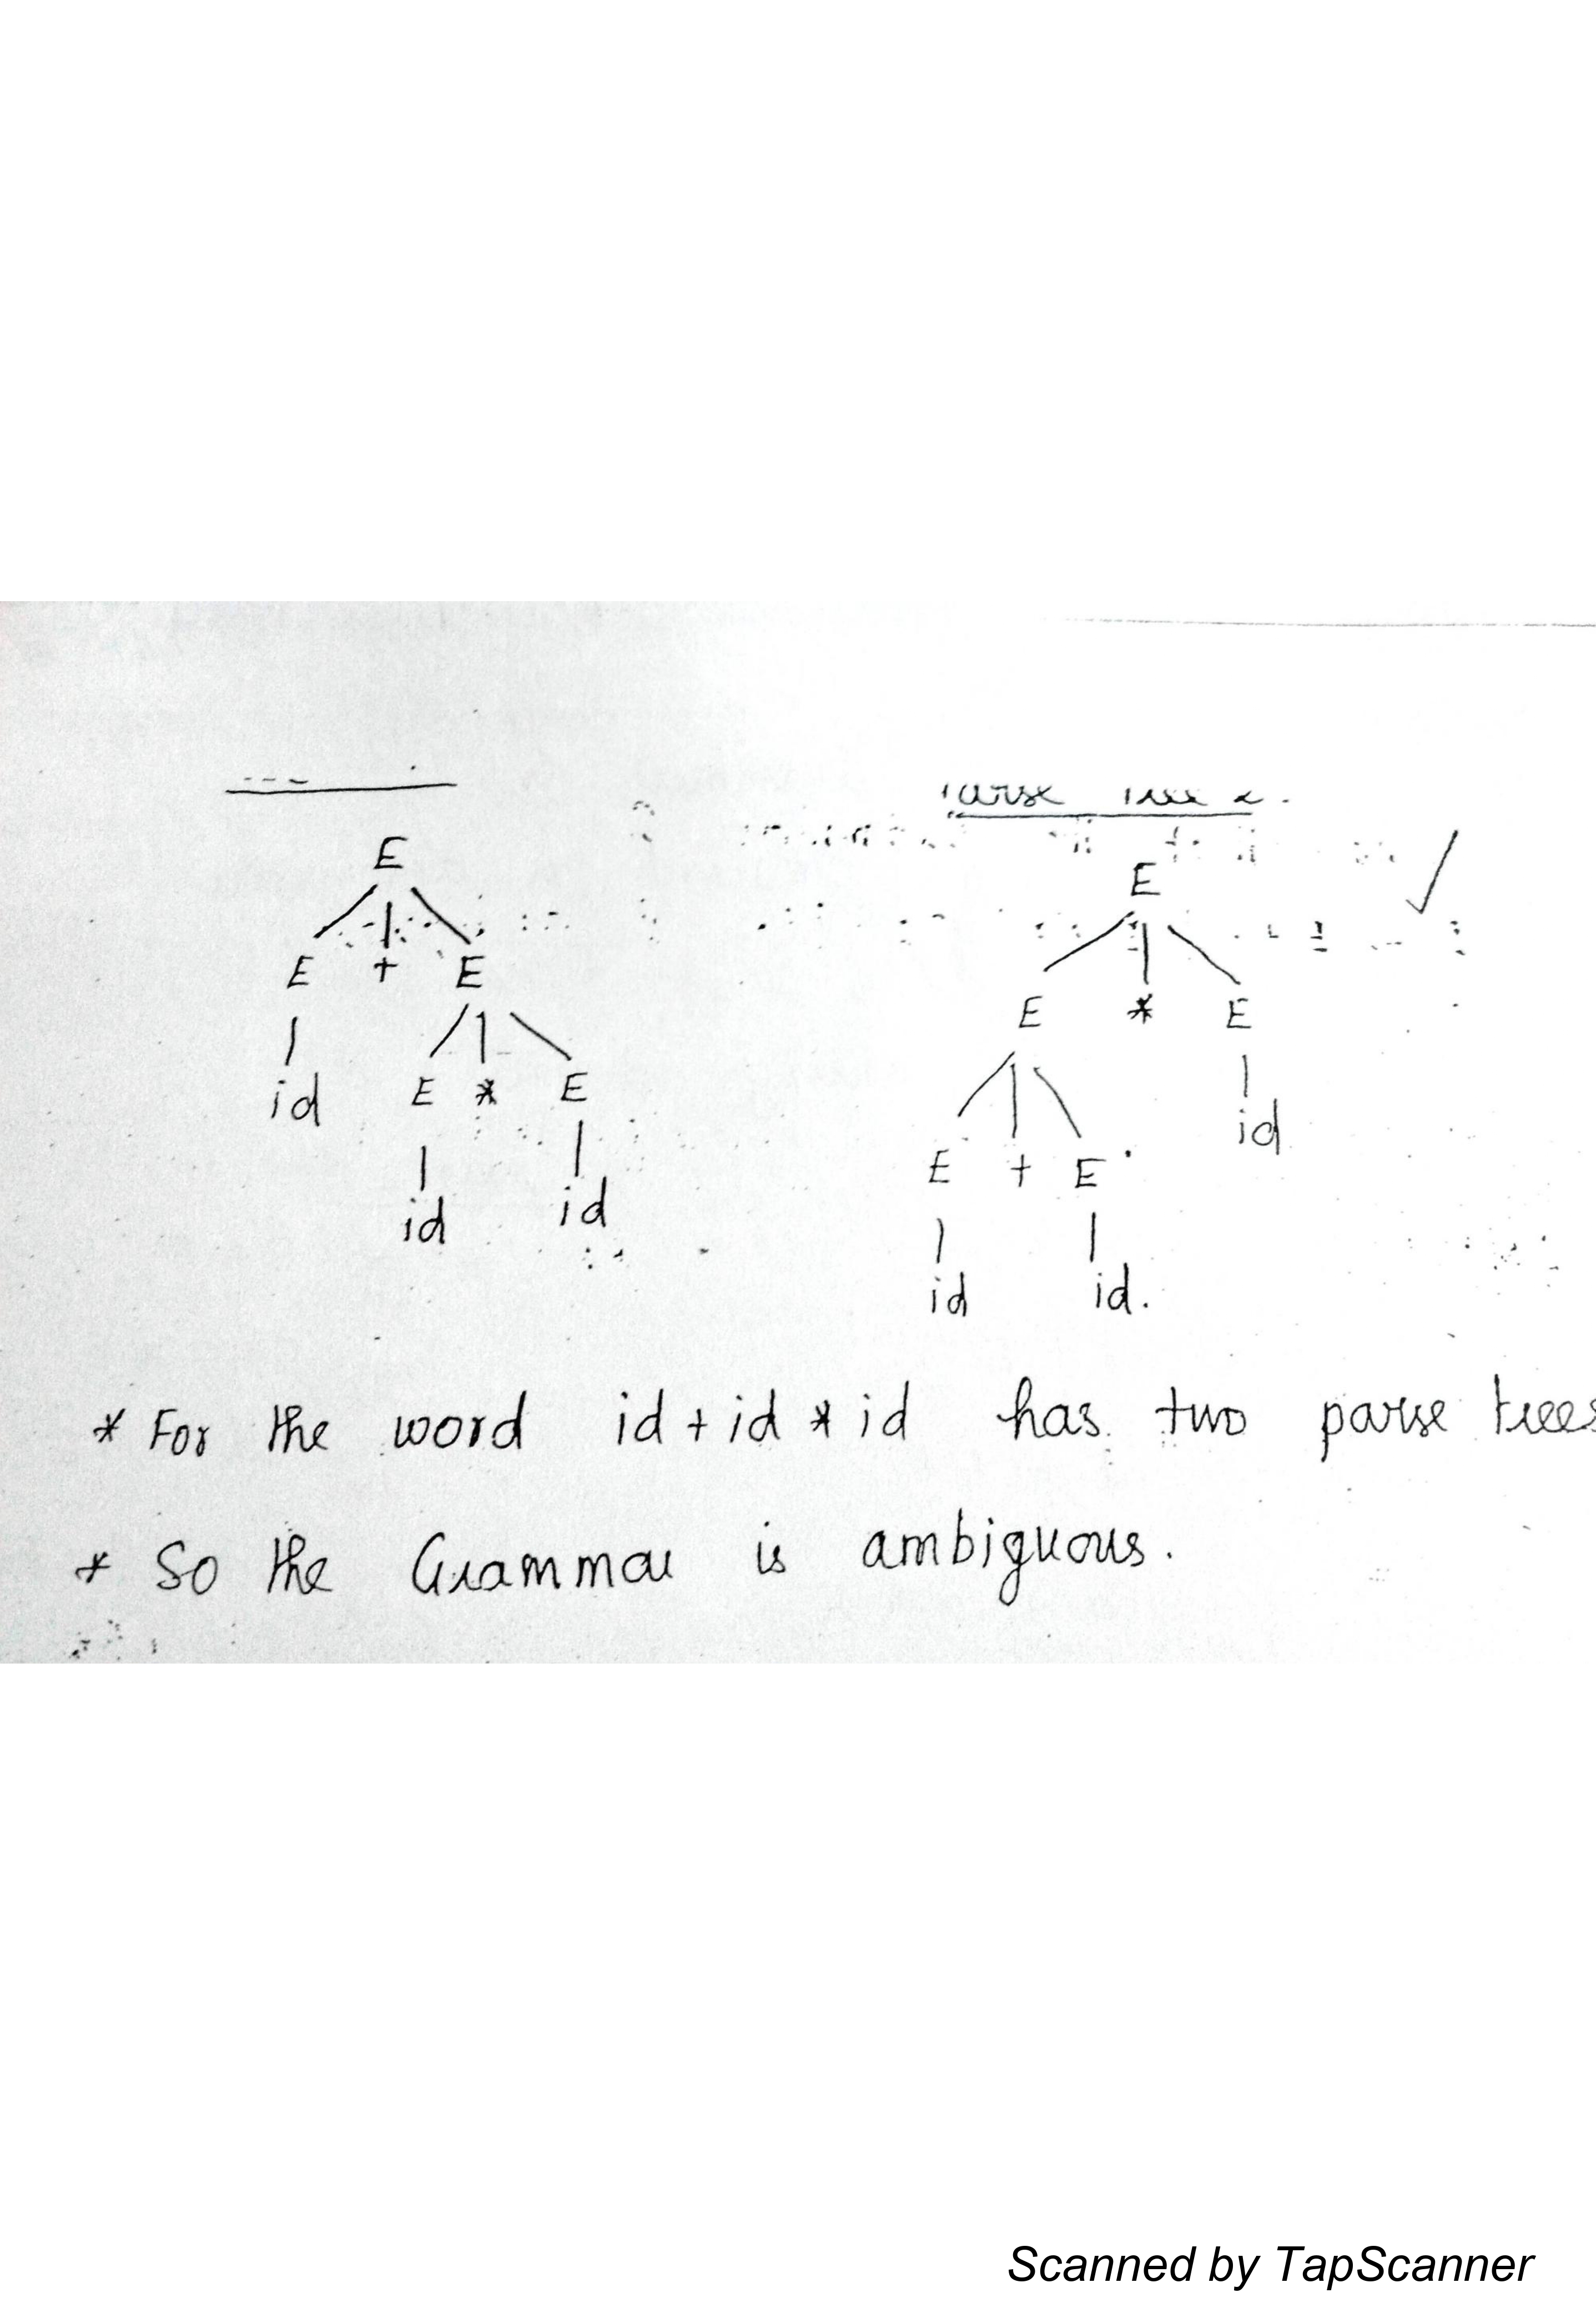 E
E
E + E
E * E
E * E
id
id
E + E
id id
id id.
* For the word id + id * id has two parse trees
* So the Grammar is ambiguous.
Scanned by TapScanner